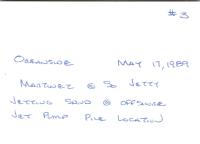 #3
OCEANSIDE MAY 17, 1989
MARTINEZ @ SO JETTY
JETTING SAND @ OFFSHORE
JET PUMP PILE LOCATION